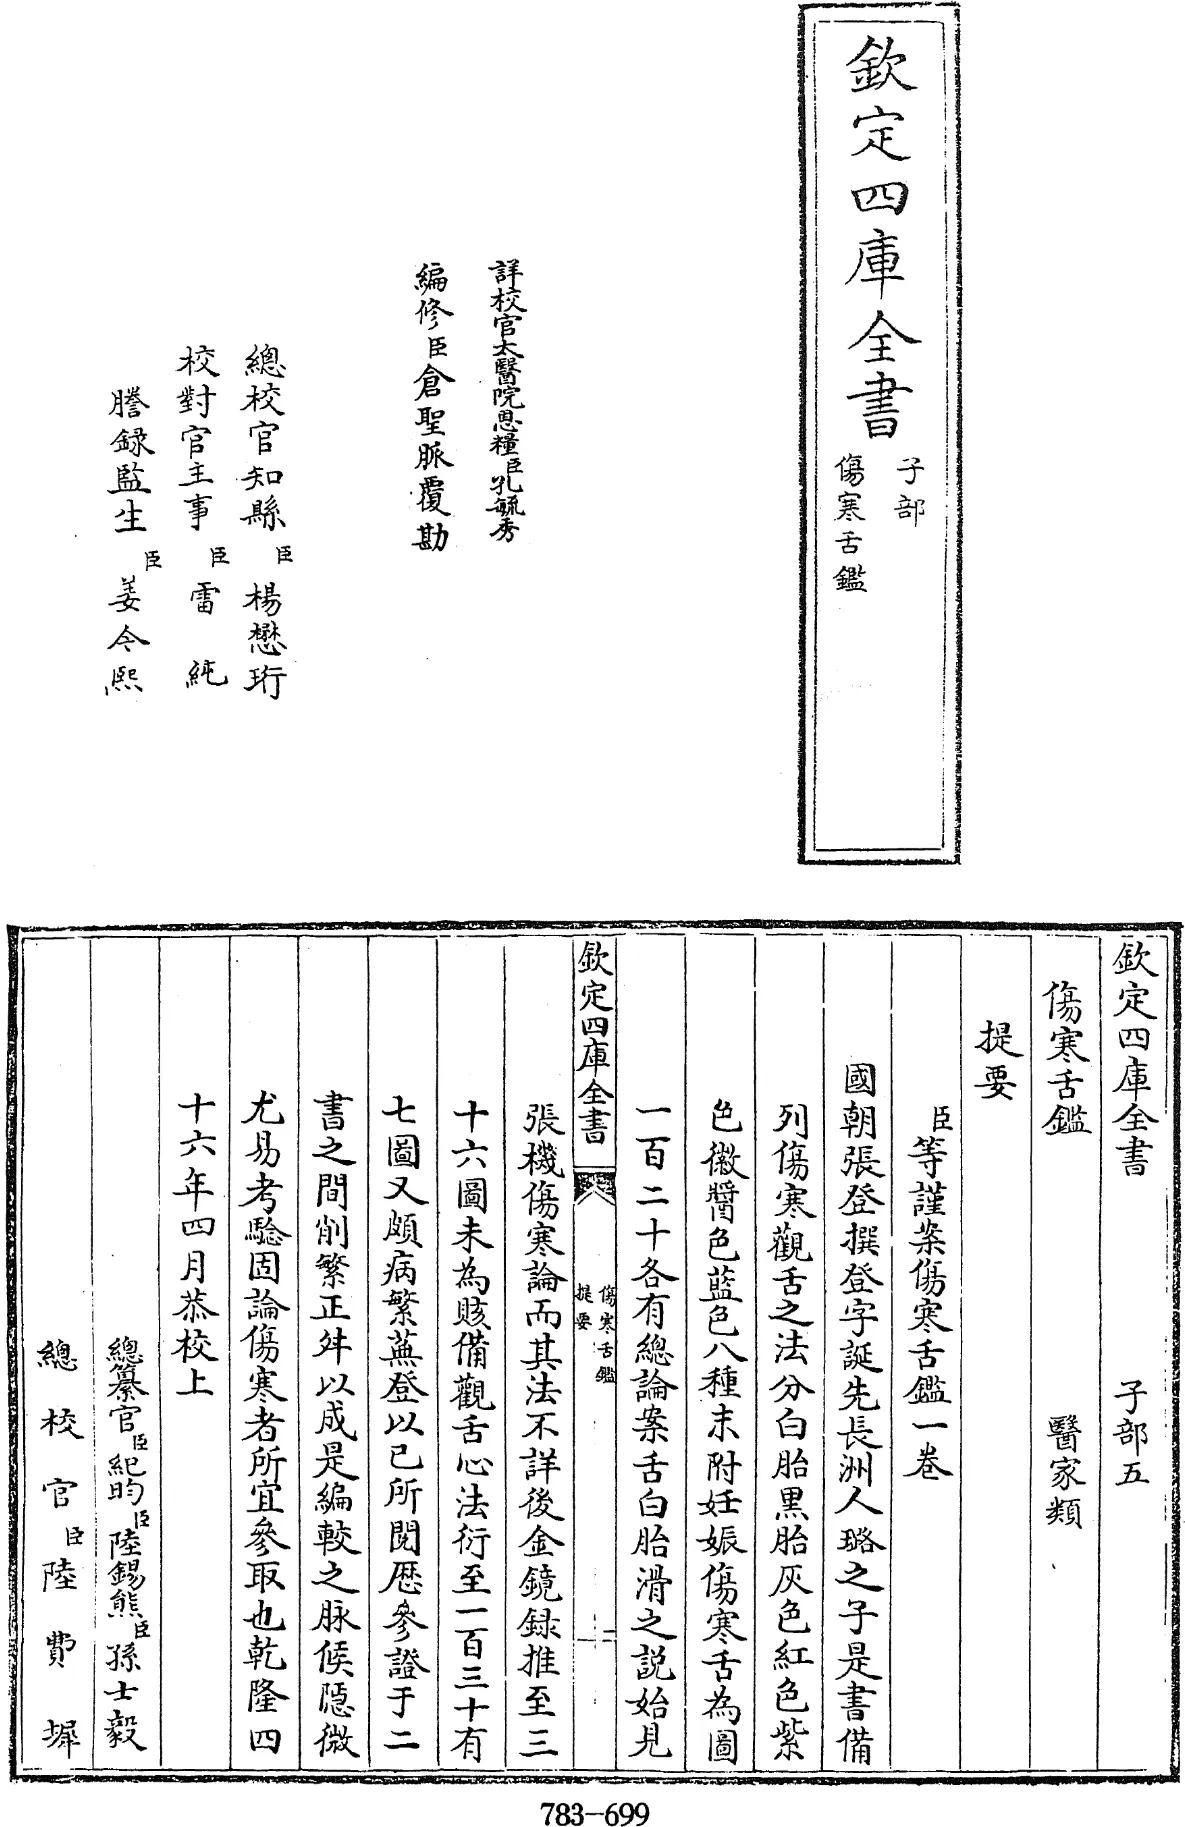 欽定四庫全書
子部
傷寒舌鑑
詳校官太醫院恩糧臣孔毓秀
編修臣倉聖脈覆勘
總校官知縣臣楊懋珩
校對官主事臣雷純
謄錄監生臣姜令熙
欽定四庫全書 子部五
傷寒舌鑑 醫家類
提要
臣等謹案傷寒舌鑑一卷
國朝張登撰登字誕先長洲人璐之子是書備
列傷寒觀舌之法分白胎黑胎灰色紅色紫
色黴醬色藍色八種末附妊娠傷寒舌為圖
一百二十各有總論案舌白胎滑之説始見
欽定四庫全書
傷寒舌鑑
提要
一
張機傷寒論而其法不詳後金鏡録推至三
十六圖未為賅備觀舌心法衍至一百三十有
七圖又頗病繁蕪登以己所閱歷參證于二
書之間削繁正舛以成是編較之脉候隱微
尤易考驗固論傷寒者所宜參取也乾隆四
十六年四月恭校上
總纂官臣紀昀臣陸錫熊臣孫士毅
總校官臣陸費墀
783-699